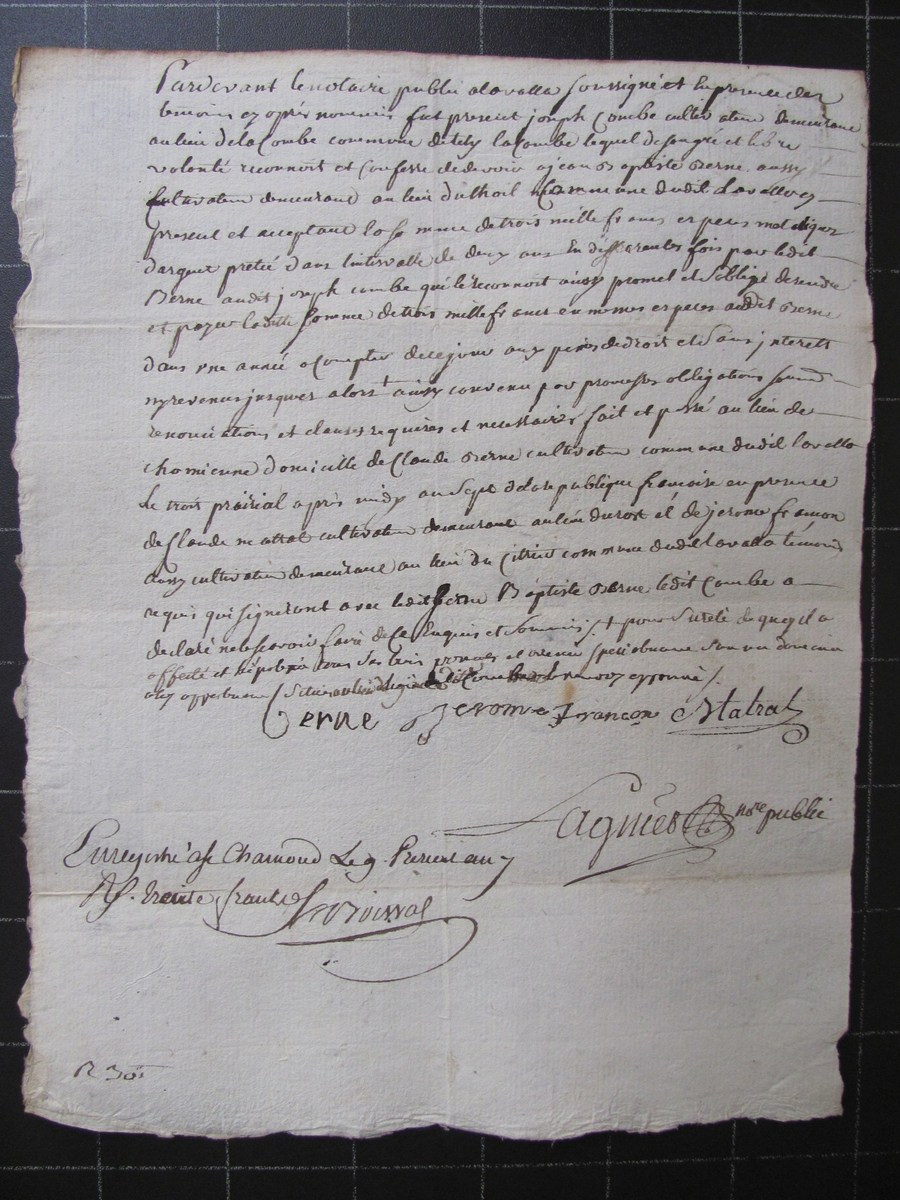 Pardevant le notaire public a lavalla soussigné et En presence des
temoins cy après nommés fut present joseph Combe cultivateur demeurant
au lieu de la Combe commune de la Combe lequel de son gré et libre
volonté reconnoit et Confesse de devoir a jean Baptiste Berne aussy
Cultivateur demeurant au lieu du Commune dudit Lavalla cy
present et acceptant la somme de trois mille francs especes metaliques
dargent preté dans lintervalle de deux ans En differentes fois par ledit
Berne audit joseph combe qui le reconnoit aussy promet et soblige de rendre
et payer laditte somme de trois mille francs en memes especes audit Berne
dans une année a Compter de ce jour aux peines de droit et sans jnterets
ny revenus jusques alors † aussy convenu par promesses obligations soumons
renonciations et clauses requises et necessaires fait et passé au lieu de
chomienne domicille de Claude Berne cultivateur commune dudit lavalla
Le trois prairial après midy an Sept de la republique francaise en presence
de Claude matrat cultivateur demeurant au lieu du rost et de jerome francon
aussy cultivateur demeurant au lieu du Citré commune dudit lavalla témoins
requis qui signeront avec ledit jean Baptiste Berne ledit Combe a
declaré ne le scavoir faire de ce Enquis et Sommés /. † pour sureté de quoy il a
affecté et hipotequé tous ses biens presents et avenir specialement son domaine
Berne Jerome francon Matrat
Lagnier nore public
Enregistré a St Chamond Le 9 Prerial an 7
R. trente francs
R 30s